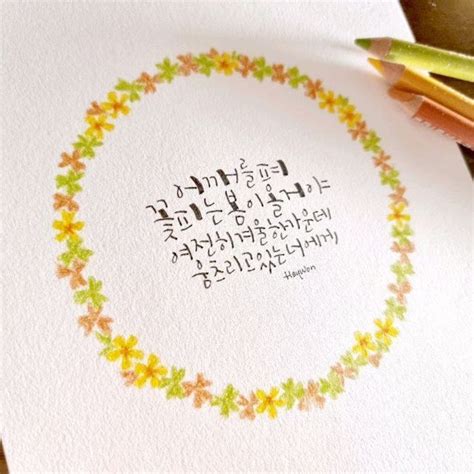 어깨를 펴
꽃피는 봄이 올 거야
여전히 겨울 한가운데
움츠리고 있는 너에게
Haywon